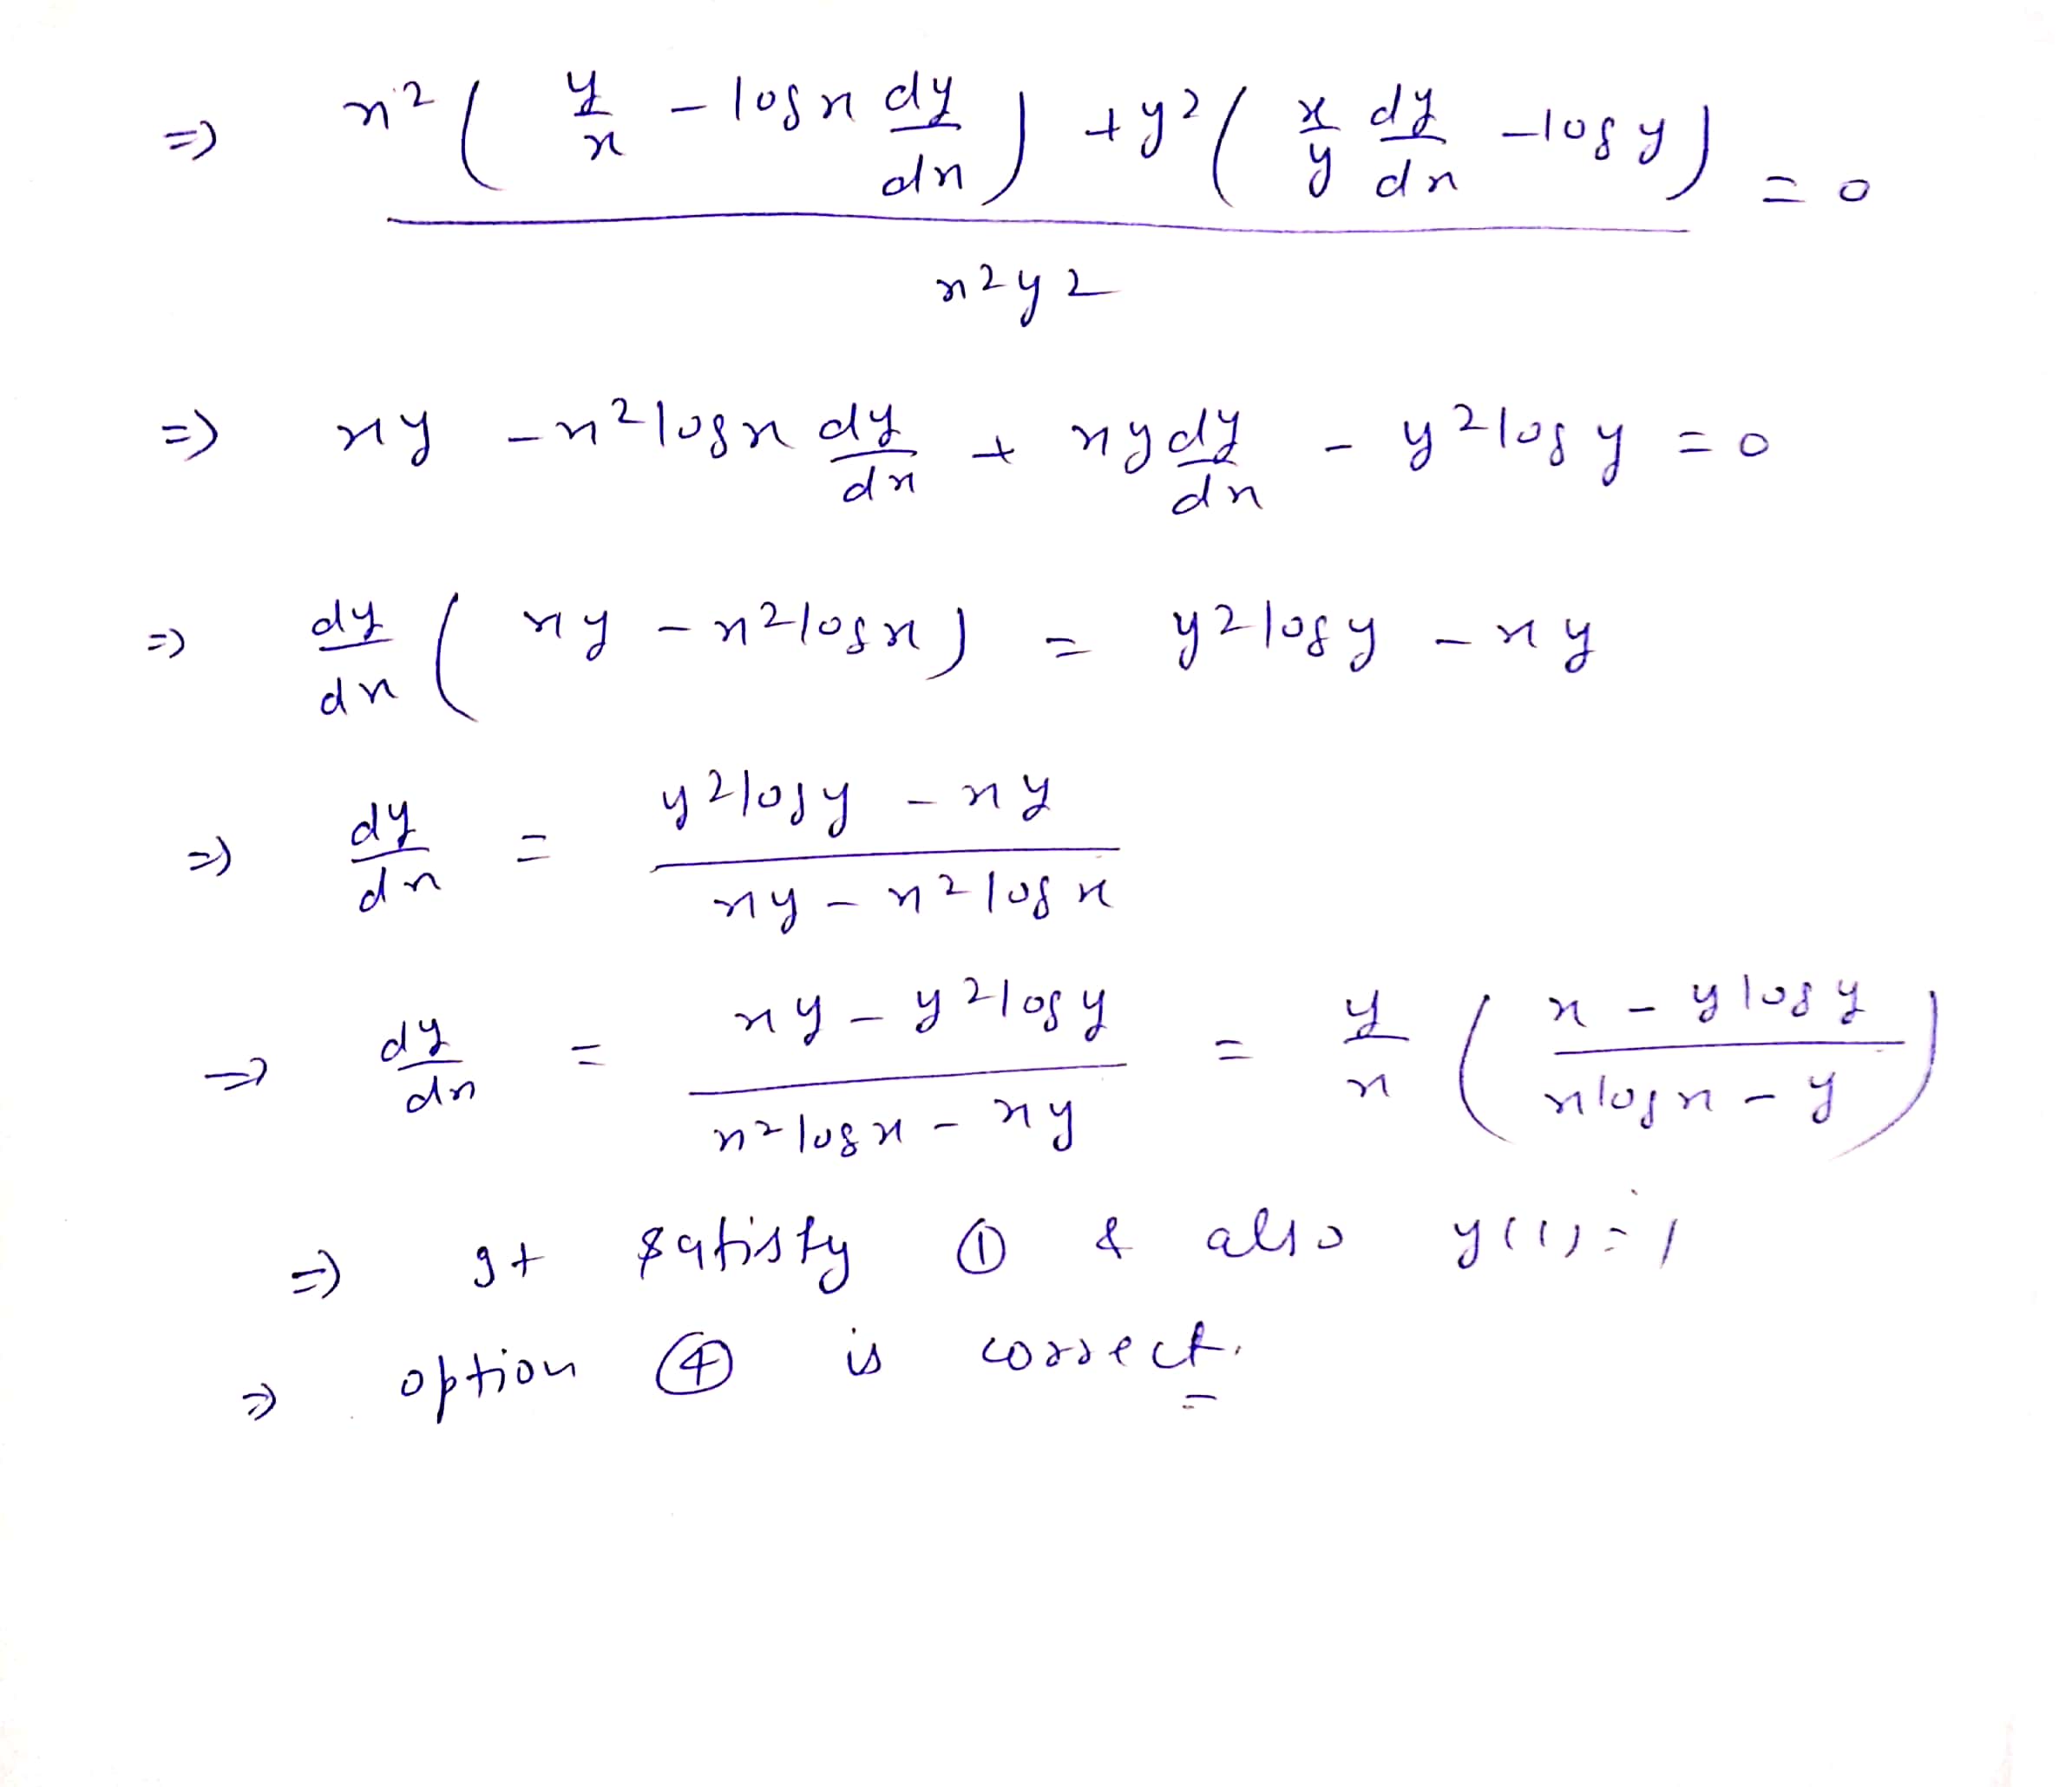 ⇒ x² ( y/x − log x dy/dx ) + y² ( x/y dy/dx − log y ) / x²y² = 0
⇒ xy − x² log x dy/dx + xy dy/dx − y² log y = 0
⇒ dy/dx ( xy − x² log x ) = y² log y − xy
⇒ dy/dx = y² log y − xy / xy − x² log x
⇒ dy/dx = xy − y² log y / x² log x − xy = y/x ( x − y log y / x log x − y )
⇒ It satisfy ① & also y(1) = 1
⇒ option ④ is correct.